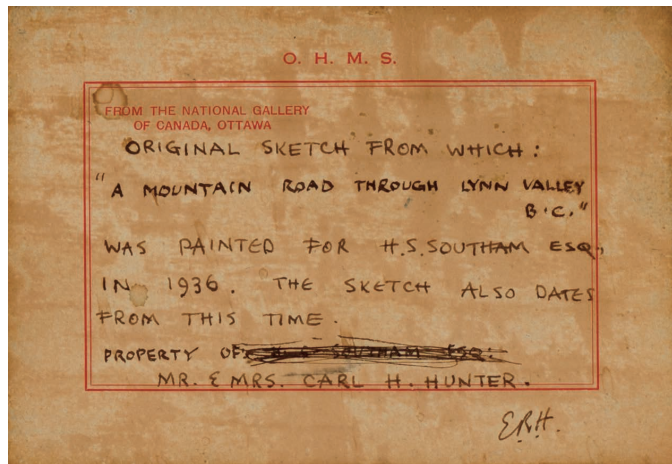 O. H. M. S.
FROM THE NATIONAL GALLERY
OF CANADA, OTTAWA
ORIGINAL SKETCH FROM WHICH :
"A MOUNTAIN ROAD THROUGH LYNN VALLEY
B.C."
WAS PAINTED FOR H.S. SOUTHAM ESQ,
IN 1936. THE SKETCH ALSO DATES
FROM THIS TIME.
PROPERTY OF SOUTHAM ESQ:
MR. & MRS. CARL H. HUNTER.
E.R.H.